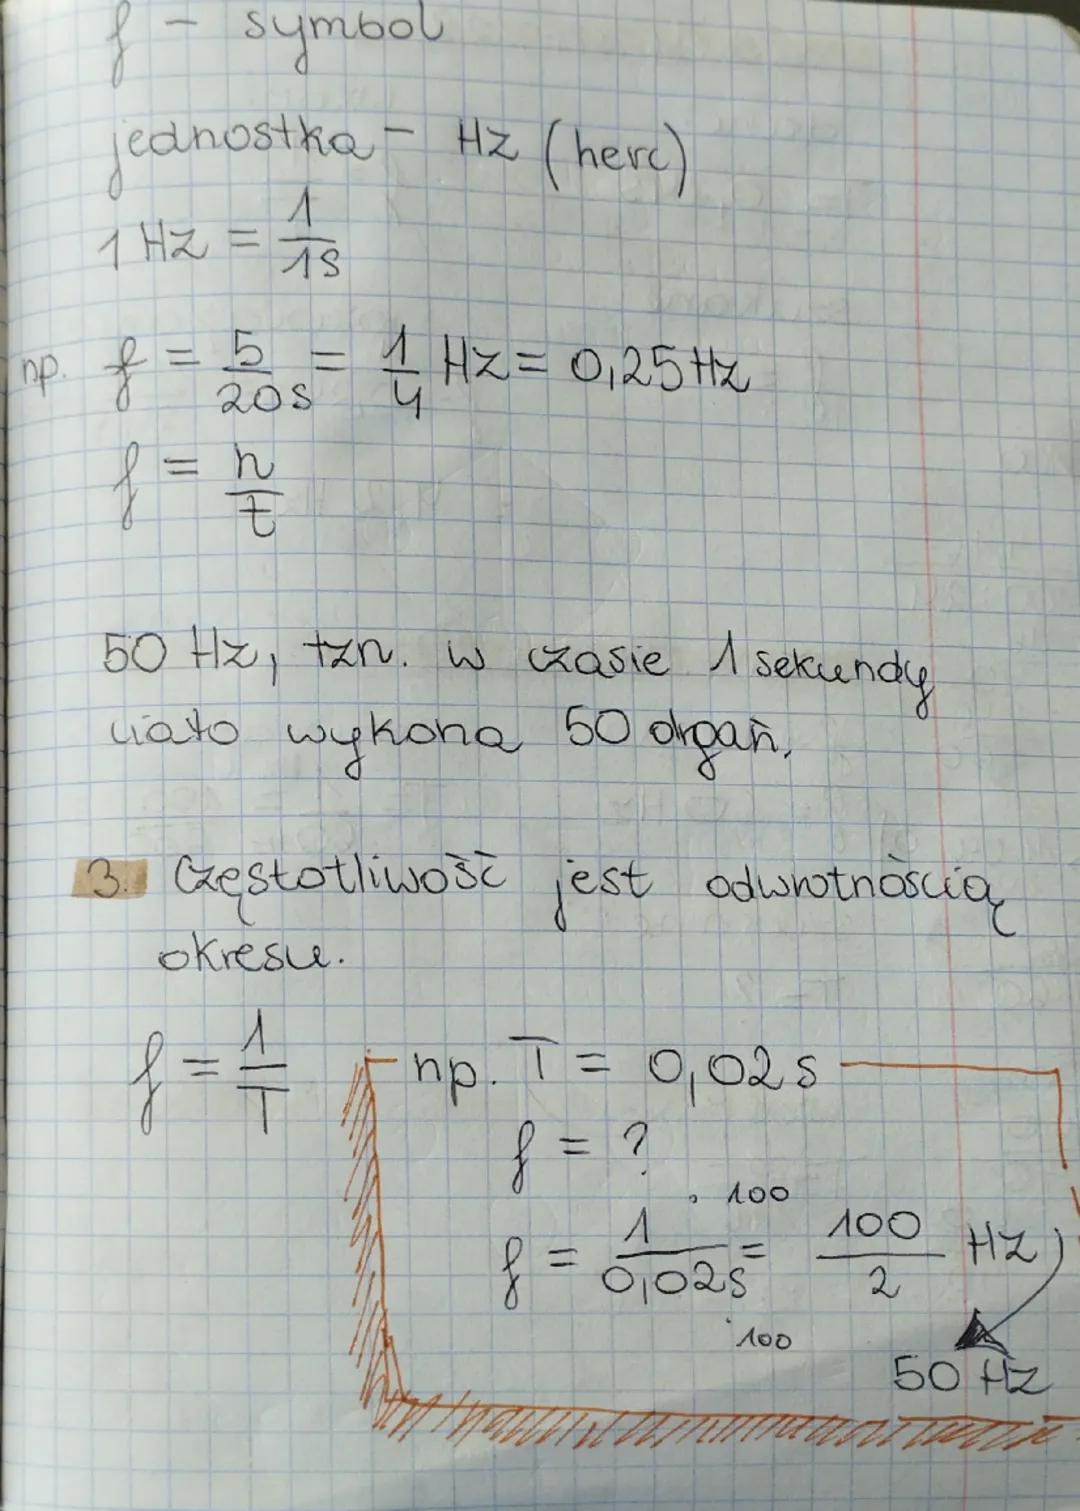 f - symbol
jednostka - Hz (herc)
1 Hz = 1/1s
np. f = 5/20s = 1/4 Hz = 0,25 Hz
f = n/t
50 Hz, tzn. w czasie 1 sekundy
ciało wykona 50 drgań.
3. Częstotliwość jest odwrotnością
okresu.
f = 1/T
np. T = 0,02s
f = ?
· 100
f = 1/0,02s = 100/2 Hz
· 100
50 Hz